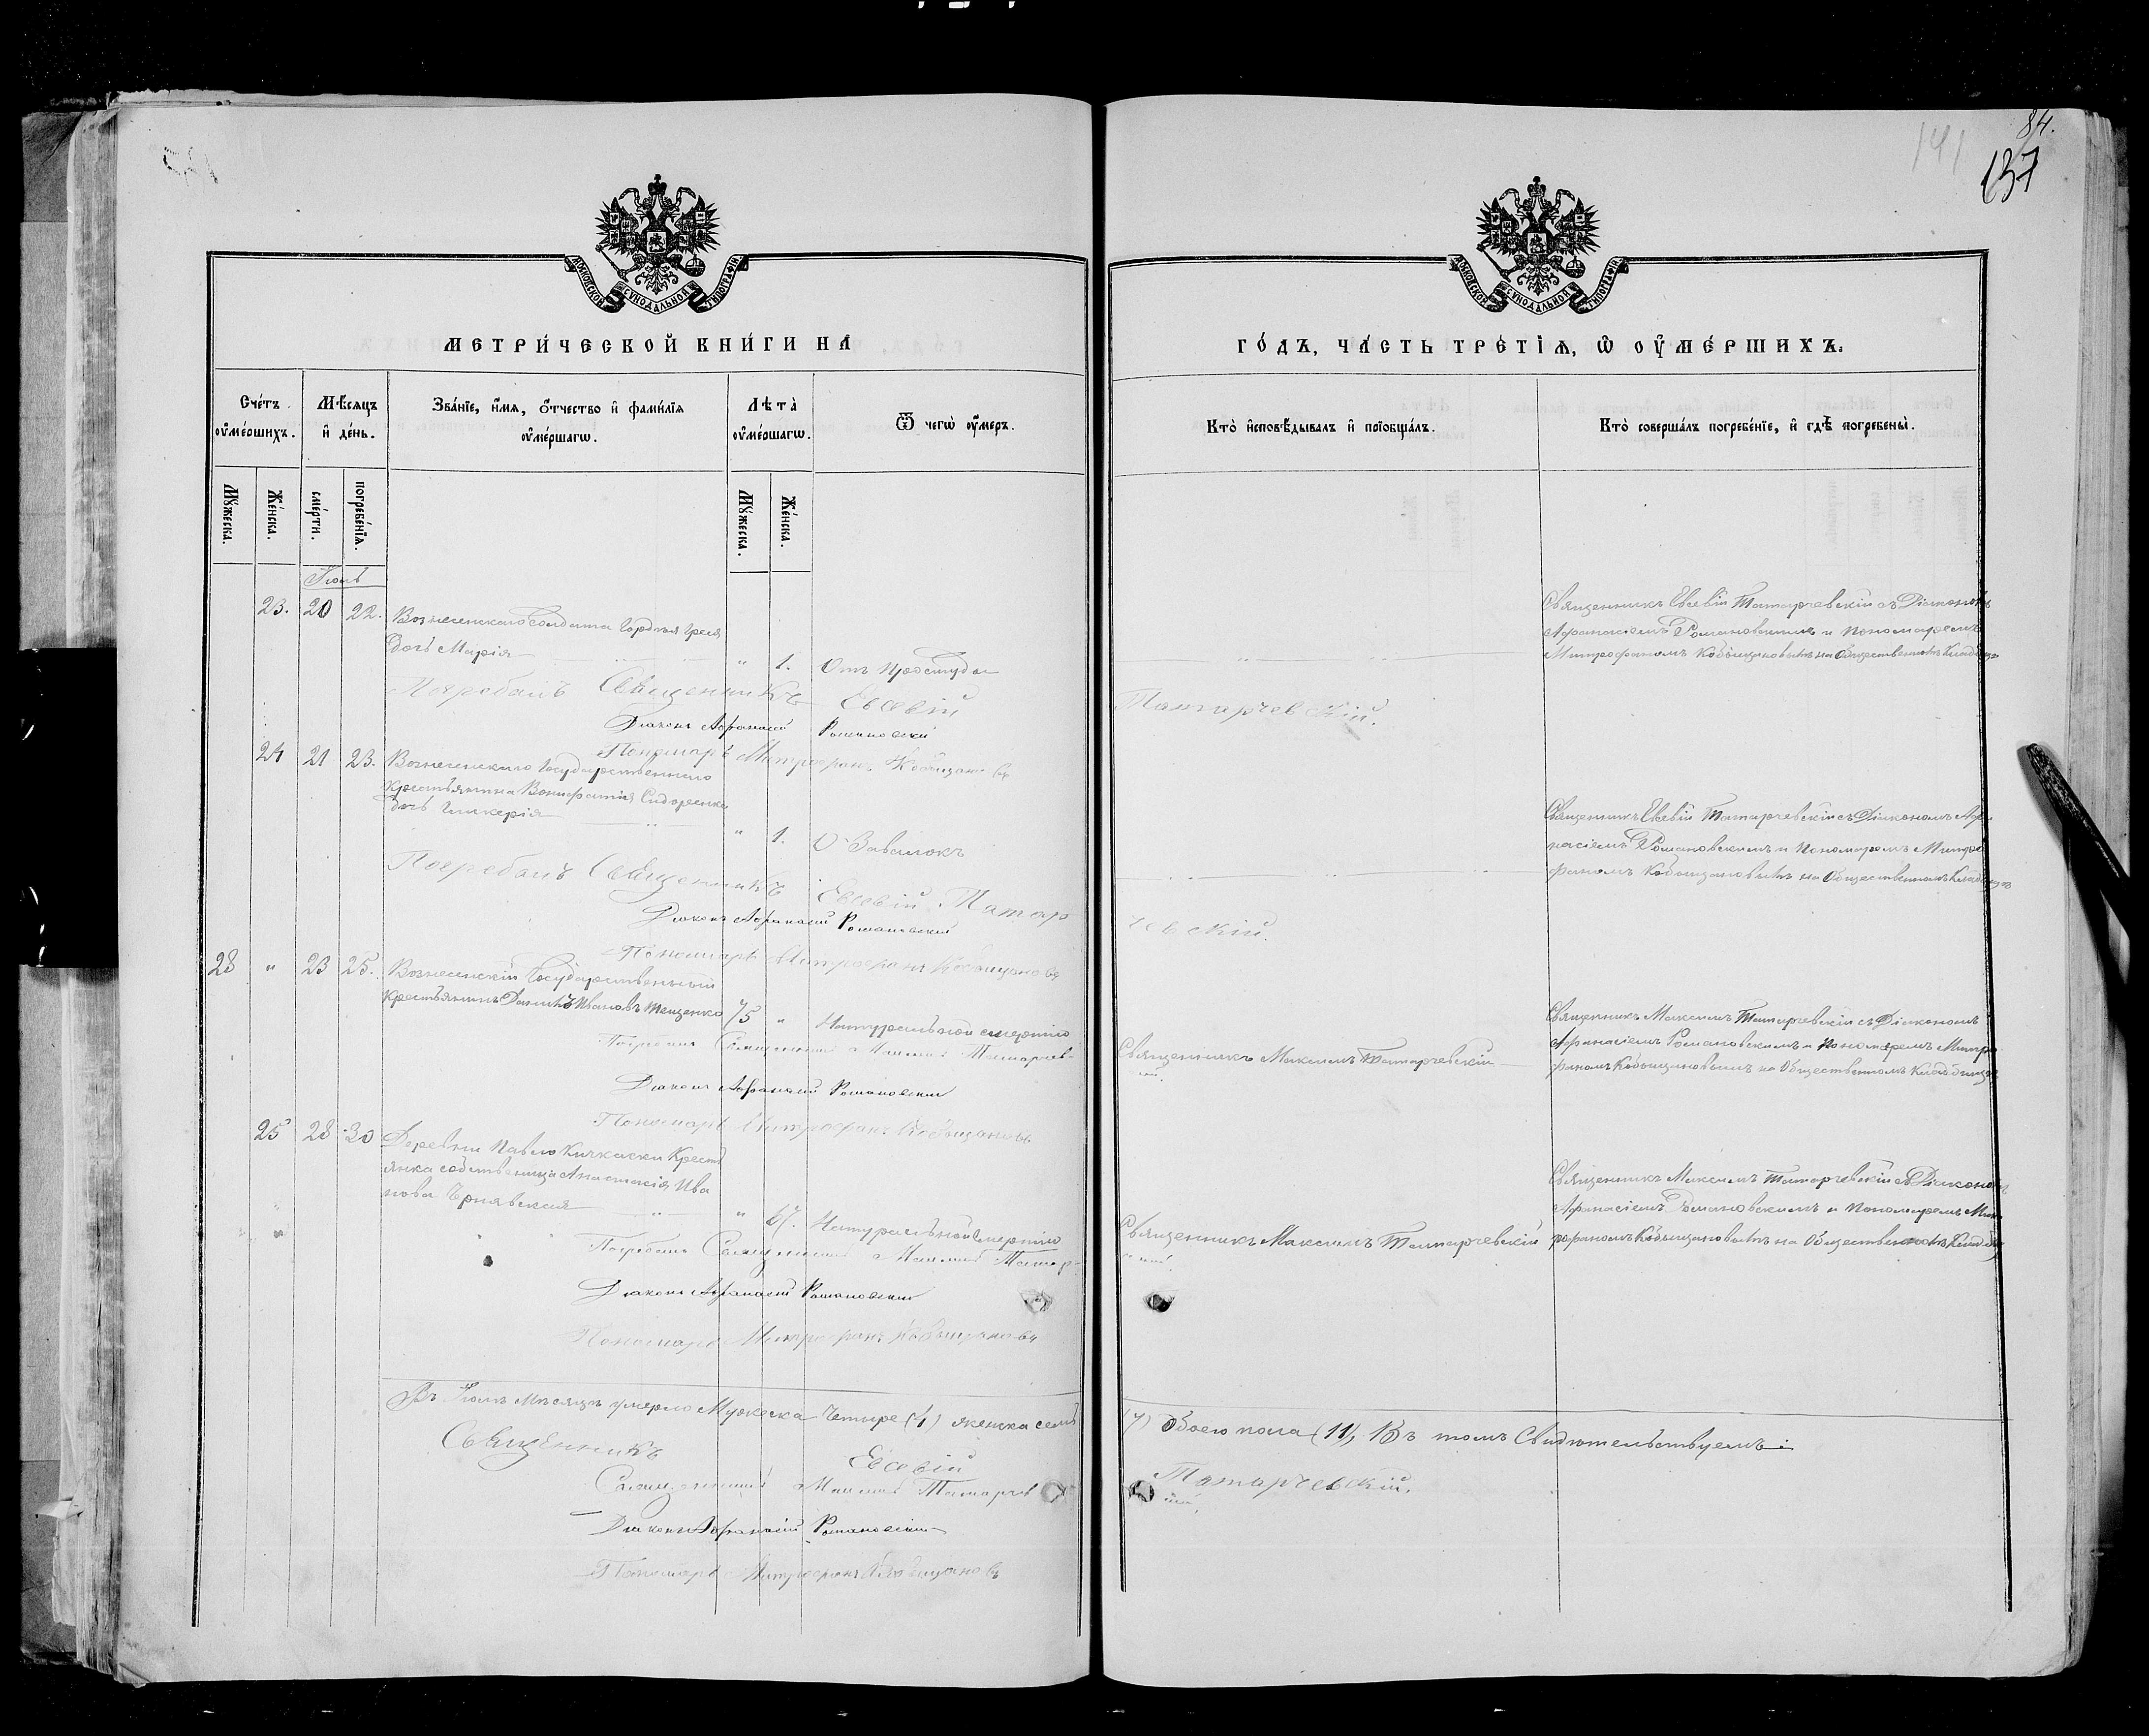 84.
141
137
МОСКОВСКОЙ СѴНОДАЛЬНОЙ ТИПОГРАФІИ
МОСКОВСКОЙ СѴНОДАЛЬНОЙ ТИПОГРАФІИ
МЕТРИ́ЧЕСКОЙ КНИ́ГИ НА̀
ГО́ДЪ, ЧА́СТЬ ТРЕ́ТІѦ, Ѡ ОУ҆МЕ́РШИХЪ.
Сче́тъ оу҆ме́ршихъ.
Мѣ́сяцъ и҆ де́нь.
Зва́нїе, и҆́мѧ, о҆́тчество и҆ фами́лїѧ оу҆ме́ршагѡ.
Лѣта̀ оу҆ме́ршагѡ.
Ѿ чегѡ̀ оу҆́меръ.
Кто̀ и҆сповѣ́дывалъ и҆ прїобща́лъ.
Кто̀ соверша́лъ погребе́нїе, и҆ гдѣ̀ погребены̀.
Мꙋ́жеска.
Же́нска.
сме́рти.
погребе́нїѧ.
Мꙋ́жеска.
Же́нска.
Іюнь
23. 20 22. Вознесенскаго Солдата Гордѣя
дочь Марія " 1. Отъ простуды
Священникъ Евсевій Татарчевскій съ Діакономъ
Афанасіемъ Романовскимъ и Пономаремъ
Митрофаномъ Кобыщановымъ на Общественномъ Кладбище
Погребалъ Священникъ Евсевій Татарчевскій.
Діаконъ Афанасій Романовскій
Пономарь Митрофанъ Кобыщановъ
24 21 23. Вознесенскаго Государственнаго
Крестьянина Вонифатія Сидоренка
дочь Гликерія " 1. О Завалокъ
Священникъ Евсевій Татарчевскій съ Діакономъ Афа
насіемъ Романовскимъ и Пономаремъ Митро
фаномъ Кобыщановымъ на Общественномъ Кладбище
Погребалъ Священникъ Евсевій Татар
чевскій.
Діаконъ Афанасій Романовскій
Пономарь Митрофанъ Кобыщановъ
28 " 23 25. Вознесенскій Государственный
Крестьянинъ Даніилъ Ивановъ Тещенко 75 " Натуральной смертію
Священникъ Максимъ Татарчевскій
Священникъ Максимъ Татарчевскій съ Діакономъ
Афанасіемъ Романовскимъ и Пономаремъ Митро
фаномъ Кобыщановымъ на Общественномъ Кладбище
Погребалъ Священникъ Максимъ Татарчев-
скій.
Діаконъ Афанасій Романовскій
Пономарь Митрофанъ Кобыщановъ
25 28 30 Деревни Павло Кичкаски Кресть
янка собственница Анастасія Ива
нова Чернявская " 67. Натуральной смертію
Священникъ Максимъ Татарчевскій
Священникъ Максимъ Татарчевскій съ Діакономъ
Афанасіемъ Романовскимъ и Пономаремъ Мит
рофаномъ Кобыщановымъ на Общественномъ Кладбище
Погребалъ Священникъ Максимъ Татар-
Діаконъ Афанасій Романовскій
Пономарь Митрофанъ Кобыщановъ
Въ мѣсяцѣ умерло Мужеска Четыре (4) женска семь
(7) Обоего пола (11), Въ томъ Свидѣтельствуемъ:
Священникъ Евсевій Татарчевскій.
Священникъ Максимъ Татарчев
скій.
Діаконъ Афанасій Романовскій
Пономарь Митрофанъ Кобыщановъ